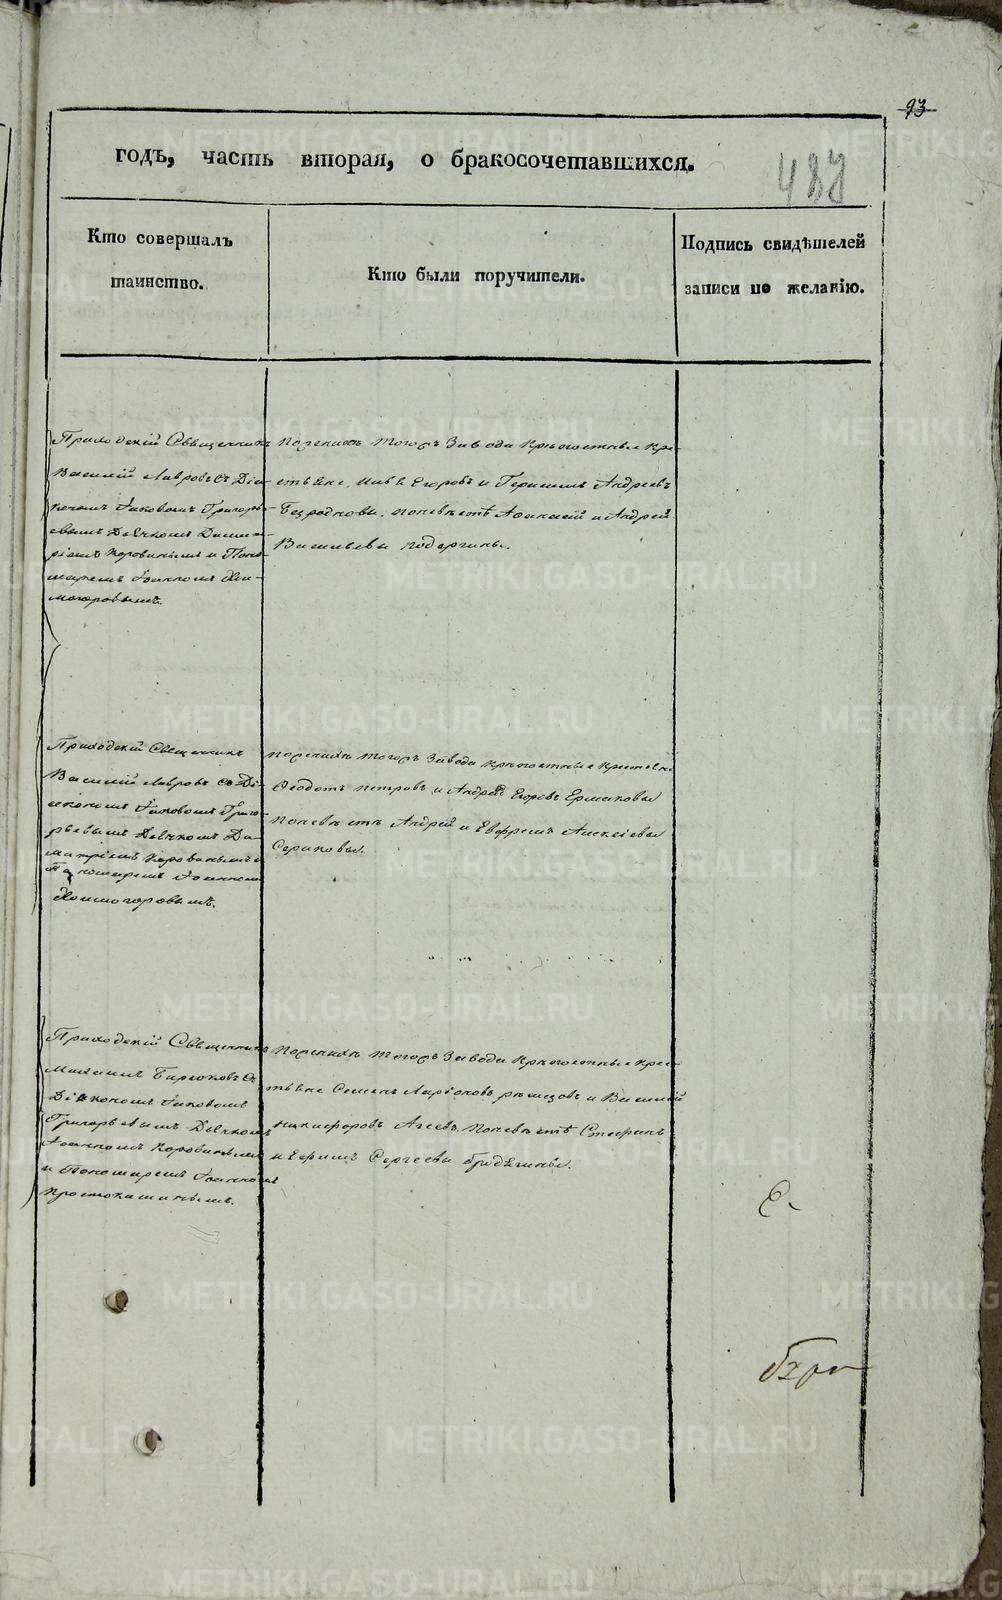 93
годъ, часть вторая, о бракосочетавшихся.
487
Кто совершалъ
таинство.
Кто были поручители.
Подпись свидѣтелей
записи по желанію.
Приходскій Священникъ
Василій Лавровъ съ Діа-
кономъ Іаковомъ Григорь-
евымъ Дьячкомъ Димит-
ріемъ Коровинымъ и Поно-
маремъ Іоанномъ Хол-
могоровымъ.
по женихѣ тогожъ Завода крѣпостные кре-
стьяне, Егоровъ и Герасимъ Андреевъ
Безродновы, поневѣстѣ Афанасій и Андрей
Васильевы
Приходскій Священникъ
Василій Лавровъ съ Ді-
акономъ Іаковомъ Григо-
рьевымъ Дьячкомъ Ди-
митріемъ Коровинымъ и
Пономаремъ Іоанномъ
Холмогоровымъ.
по женихѣ тогожъ Завода крѣпостные крестьяне
Федотъ Петровъ и Андрей Егоровъ Ермаковы
поневѣстѣ Андрей и Евфремъ Алексіевы
Сериковы.
Приходскій Священникъ
Михаилъ Бирюковъ съ
Діакономъ Іаковомъ
Григорьевымъ Дьячкомъ
Іоанномъ Коровинымъ
и Пономаремъ Іоанномъ
Простокашинымъ.
по женихѣ тогожъ Завода крѣпостные крес-
тьяне Семенъ Ларіоновъ и Василій
Никифоровъ Агеевъ, поневѣстѣ Стефанъ
и Ефимъ Сергеевы
METRIKI.GASO-URAL.RU